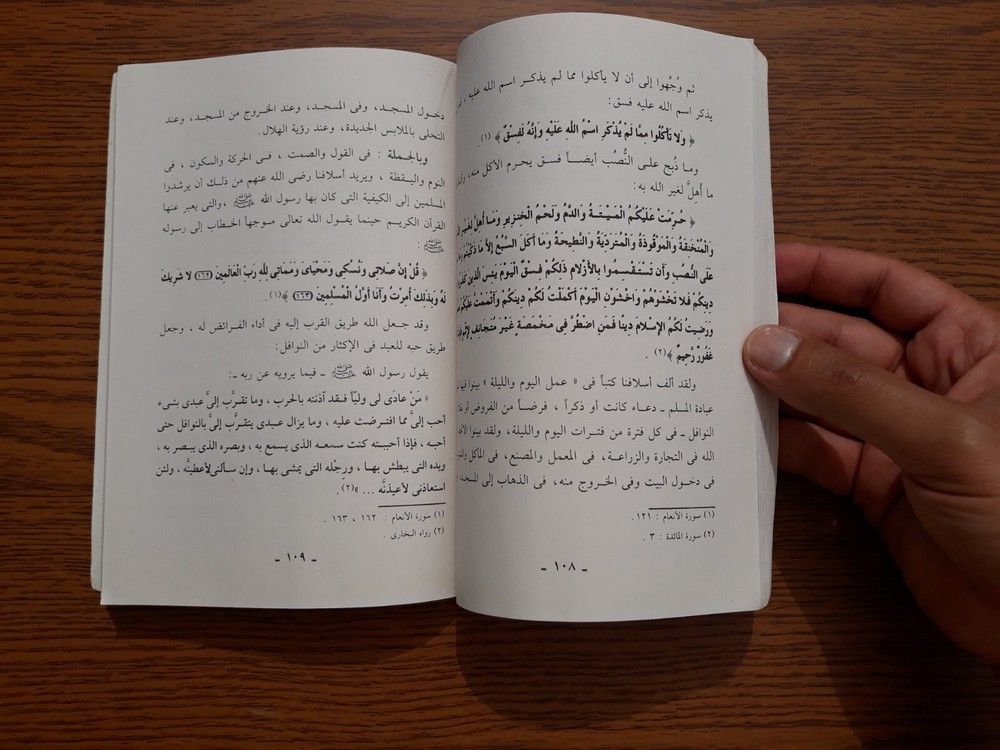 ثم وُجِّهوا إلى أن لا يأكلوا مما لم يذكر اسم الله عليه ،
يذكر اسم الله عليه فسق :
﴿ وَلا تَأْكُلُوا مِمَّا لَمْ يُذْكَرِ اسْمُ اللَّهِ عَلَيْهِ وَإِنَّهُ لَفِسْقٌ ﴾ (١) .
وما ذُبح على النُّصُب أيضاً فسق يحرم الأكل منه،
ما أُهِلَّ لغير الله به :
﴿ حُرِّمَتْ عَلَيْكُمُ الْمَيْتَةُ وَالدَّمُ وَلَحْمُ الْخِنزِيرِ وَمَا أُهِلَّ لِغَيْرِ
وَالْمُنْخَنِقَةُ وَالْمَوْقُوذَةُ وَالْمُتَرَدِّيَةُ وَالنَّطِيحَةُ وَمَا أَكَلَ السَّبُعُ إِلاَّ مَا ذَكَّيْتُمْ وَمَا
عَلَى النُّصُبِ وَأَن تَسْتَقْسِمُوا بِالأَزْلامِ ذَلِكُمْ فِسْقٌ الْيَوْمَ يَئِسَ الَّذِينَ كَفَرُوا
دِينِكُمْ فَلا تَخْشَوْهُمْ وَاخْشَوْنِ الْيَوْمَ أَكْمَلْتُ لَكُمْ دِينَكُمْ وَأَتْمَمْتُ عَلَيْكُمْ
وَرَضِيتُ لَكُمُ الإِسْلامَ دِينًا فَمَنِ اضْطُرَّ فِى مَخْمَصَةٍ غَيْرَ مُتَجَانِفٍ لإِثْمٍ
غَفُورٌ رَّحِيمٌ ﴾ (٢) .
ولقد ألف أسلافنا كتباً فى « عمل اليوم والليلة » بينوا فيها
عبادة المسلم ـ دعاء كانت أو ذكراً ، فرضاً من الفروض أو
النوافل ـ فى كل فترة من فترات اليوم والليلة، ولقد بينوا
الله فى التجارة والزراعة، فى المعمل والمصنع، فى المأكل
فى دخول البيت وفى الخروج منه، فى الذهاب إلى
(١) سورة الأنعام : ١٢١ .
(٢) سورة المائدة : ٣ .
ـ ١٠٨ ـ
دخول المسجد، وفى المسجد، وعند الخروج من المسجد، وعند
التحلى بالملابس الجديدة، وعند رؤية الهلال.
وبالجملة : فى القول والصمت ، فى الحركة والسكون ، فى
النوم واليقظة ، ويريد أسلافنا رضى الله عنهم من ذلك أن يرشدوا
المسلمين إلى الكيفية التى كان بها رسول الله ﷺ ،والتى يعبر عنها
القرآن الكريم حينما يقول الله تعالى موجهاً الخطاب إلى رسوله
ﷺ :
﴿ قُلْ إِنَّ صَلاتِى وَنُسُكِى وَمَحْيَاىَ وَمَمَاتِى لِلَّهِ رَبِّ الْعَالَمِينَ (١٦٢) لا شَرِيكَ
لَهُ وَبِذَلِكَ أُمِرْتُ وَأَنَا أَوَّلُ الْمُسْلِمِينَ (١٦٣) ﴾(١) .
وقد جعل الله طريق القرب إليه فى أداء الفرائض له ، وجعل
طريق حبه للعبد فى الإكثار من النوافل:
يقول رسول الله ﷺ ـ فيما يرويه عن ربه ـ:
« مَنْ عادَى لى وليّاً فقد آذنته بالحرب ، وما تقرَّب إلىَّ عبدى بشىء
أحب إلىَّ مما افترضت عليه ، وما يزال عبدى يتقرَّب إلىَّ بالنوافل حتى
أحبه ، فإذا أحببته كنت سمعه الذى يسمع به ، وبصره الذى يبصر به ،
ويده التى يبطش بها ، ورِجْله التى يمشى بها ، وإن سألنى لأعطينَّه ، ولئن
استعاذنى لأعيذنَّه ... »(٢) .
(١) سورة الأنعام : ١٦٢ ، ١٦٣ .
(٢) رواه البخارى .
ـ ١٠٩ ـ